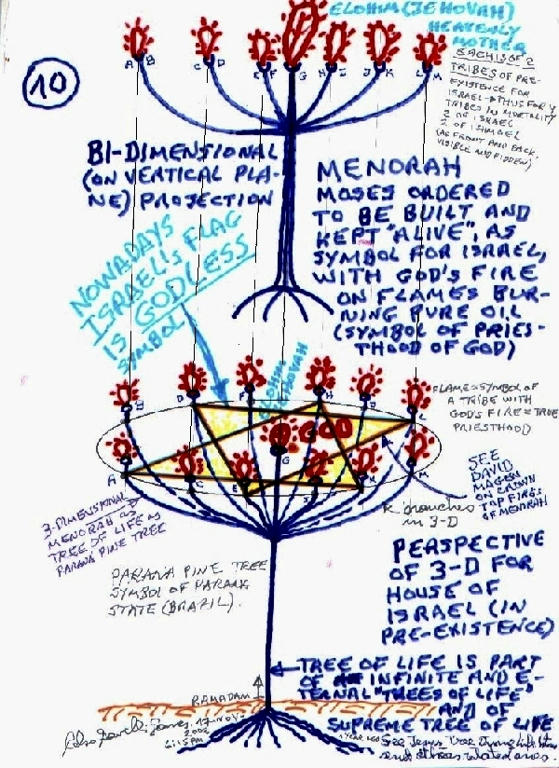 10
ELOHIM (JEHOVAH)
HEAVENLY
MOTHER
A B C D E F G H I J K L M
EACH IS OF 2
TRIBES OF PRE-
EXISTENCE FOR
ISRAEL
TRIBES IN MORTALITY
2 OF ISRAEL
2 OF ISHMAEL
(AS FRONT AND BACK,
VISIBLE AND HIDDEN)
BI-DIMENSIONAL
(ON VERTICAL PLA-
NE) PROJECTION
MENORAH
MOSES ORDERED
TO BE BUILT AND
KEPT "ALIVE", AS
SYMBOL FOR ISRAEL,
WITH GOD'S FIRE
ON FLAMES BUR-
NING PURE OIL
(SYMBOL OF PRIES-
THOOD OF GOD)
NOWADAYS
ISRAEL'S FLAG
IS GODLESS
SYMBOL
ELOHIM
JEHOVAH
B D F H J L
GOD
A C E G I K M
FLAME=SYMBOL OF
A TRIBE WITH
GOD'S FIRE=TRUE
PRIESTHOOD
SEE
DAVID
MAGEN
ON CROWN
TOP FIRES
OF MENORAH
branches
in 3-D
3-DIMENSIONAL
MENORAH OR
TREE OF LIFE AS
PARANA PINE TREE
PARANA PINE TREE
SYMBOL OF PARANA
STATE (BRAZIL).
PERSPECTIVE
OF 3-D FOR
HOUSE OF
ISRAEL (IN
PRE-EXISTENCE)
TREE OF LIFE IS PART
OF INFINITE AND E-
TERNAL "TREES OF LIFE"
AND OF
SUPREME TREE OF LIFE
RAMADAM
2002
6:15PM
See Jesus' Tree
and others related ones.